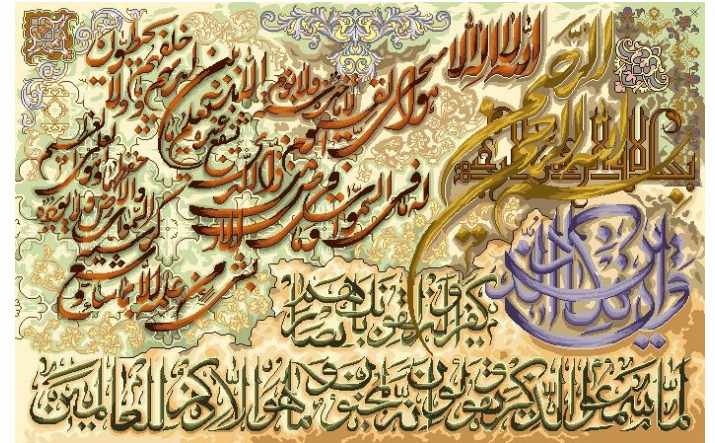 بسم الله الرحمن الرحیم
الله لا اله الا
هو الحی القیوم لا تاخذه سنة ولا نوم
له ما فی السموات وما فی الارض من ذا الذی
یشفع عنده الا باذنه یعلم ما بین ایدیهم وما خلفهم ولا یحیطون
بشی من علمه الا بما شاء وسع کرسیه السموات والارض ولا یوده حفظهما وهو العلی العظیم
وان یکاد الذین
کفروا لیزلقونک بابصارهم
لما سمعوا الذکر ویقولون انه لمجنون وما هو الا ذکر للعالمین